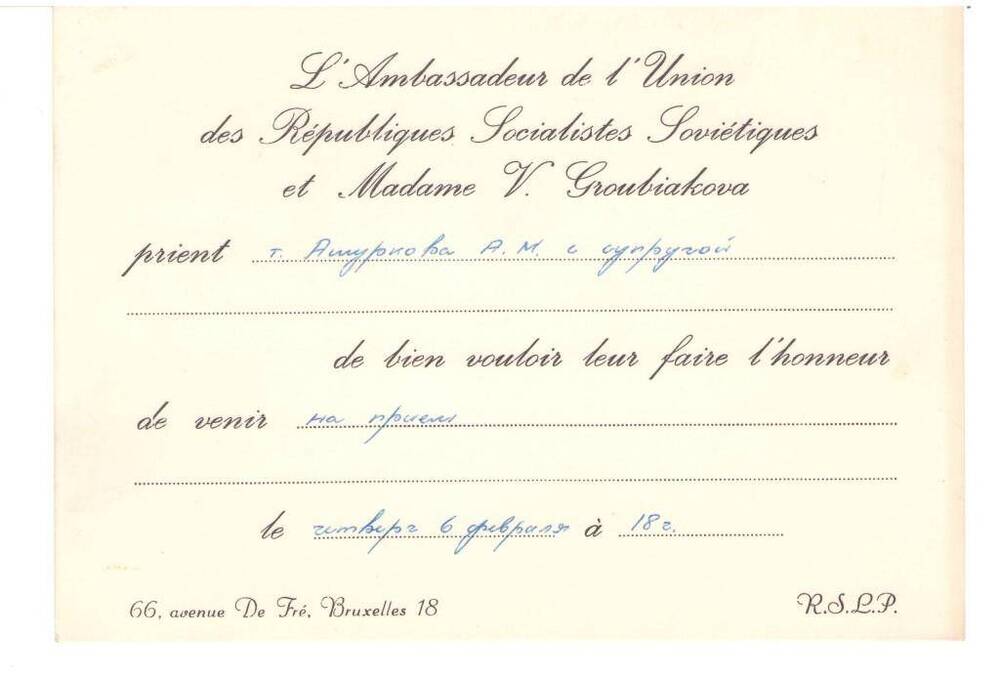 L'Ambassadeur de l'Union
des Républiques Socialistes Soviétiques
et Madame V. Groubiakova
prient т. Ашуркова А. М. с супругой
de bien vouloir leur faire l'honneur
de venir на прием
le четверг 6 февраля à 18 ч.
66, avenue De Fré, Bruxelles 18 R.S.L.P.